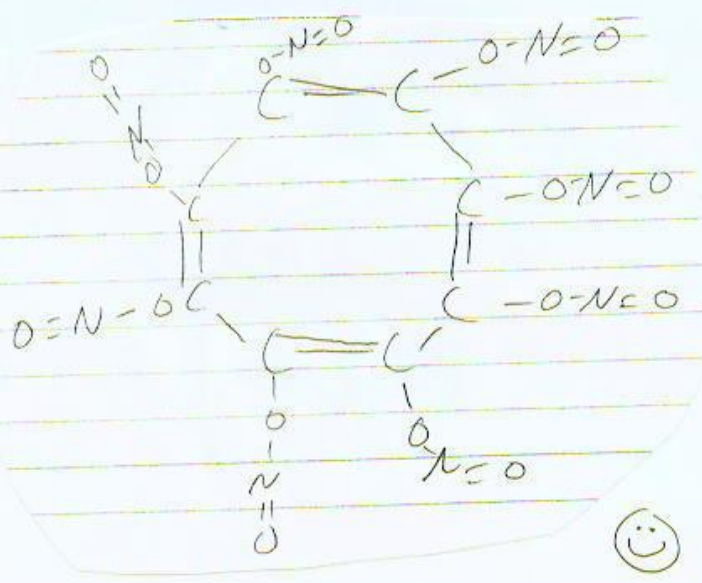 O-N=O
O-N=O
O=N-O
C=C
C-O-N=O
C
O=N-O C
C-O-N=O
C=C
O
N
O
O
N=O